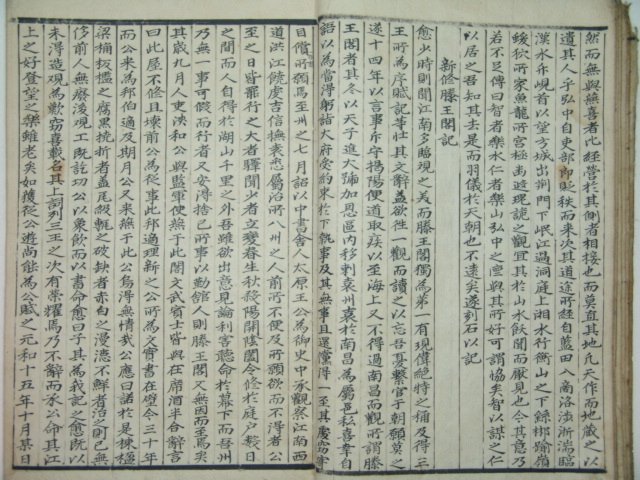 然而無與燕喜者比經營於其側者相接也而莫直其地凡天作而地藏之以
遺其人乎弘中自吏部郎貶秩而來次其道途所經自藍田入商洛涉淅湍臨
漢水升峴首以望方城出荆門下岷江過洞庭上湘水行衡山之下繇郴踰嶺
蝯狖所家魚龍所宮極幽遐瑰詭之觀宜其於山水飫聞而厭見也今其意乃
若不足傳曰智者樂水仁者樂山弘中之德與其所好可謂協矣智以謀之仁
以居之吾知其去是而羽儀於天朝也不遠矣遂刻石以記
新修滕王閣記
愈少時則聞江南多臨觀之美而滕王閣獨為第一有瑰偉絶特之稱及得三
王所為序賦記等壯其文辭益欲往一觀而讀之以忘吾憂繫官于朝願莫之
遂十四年以言事斥守揭陽便道取疾以至海上又不得過南昌而觀所謂滕
王閣者其冬以天子進大號加恩區內移刺袁州袁於南昌為屬邑私喜幸自
語以為當得躬詣大府受約束於下執事及其無事且還儻得一至其處竊寄
目償所願焉至州之七月詔以中書舍人太原王公為御史中丞觀察江南西
道洪江饒虔吉信撫袁悉屬治所八州之人前所不便及所願欲而不得者公
至之日皆罷行之大者驛聞少者立變春生秋殺陽開陰閉令修於庭戶數日
之間而人自得於湖山千里之外吾雖欲出意見論利害聽命於幕下而吾州
乃無一事可假而行者又安得捨己所事以勤館人則滕王閣又無因而至焉矣
其歲九月人吏浹和公與監軍使燕于此閣文武賓士皆與在席酒半合辭言
曰此屋不修且壞前公為從事此邦適理新之公所為文實書在壁今三十年
而公來為邦伯適及期月公又來燕于此公烏得無情哉公應曰諾於是棟楹
梁桷板檻之腐黑撓折者蓋瓦級甎之破缺者赤白之漫漶不鮮者治之則已無
侈前人無廢後觀工既訖功公以衆飲而以書命愈曰子其為我記之愈既以
未得造觀為歎竊喜載名其上詞列三王之次有榮耀焉乃不辭而承公命其江
上之好登望之樂雖老矣如獲從公遊尚能為公賦之元和十五年十月某日